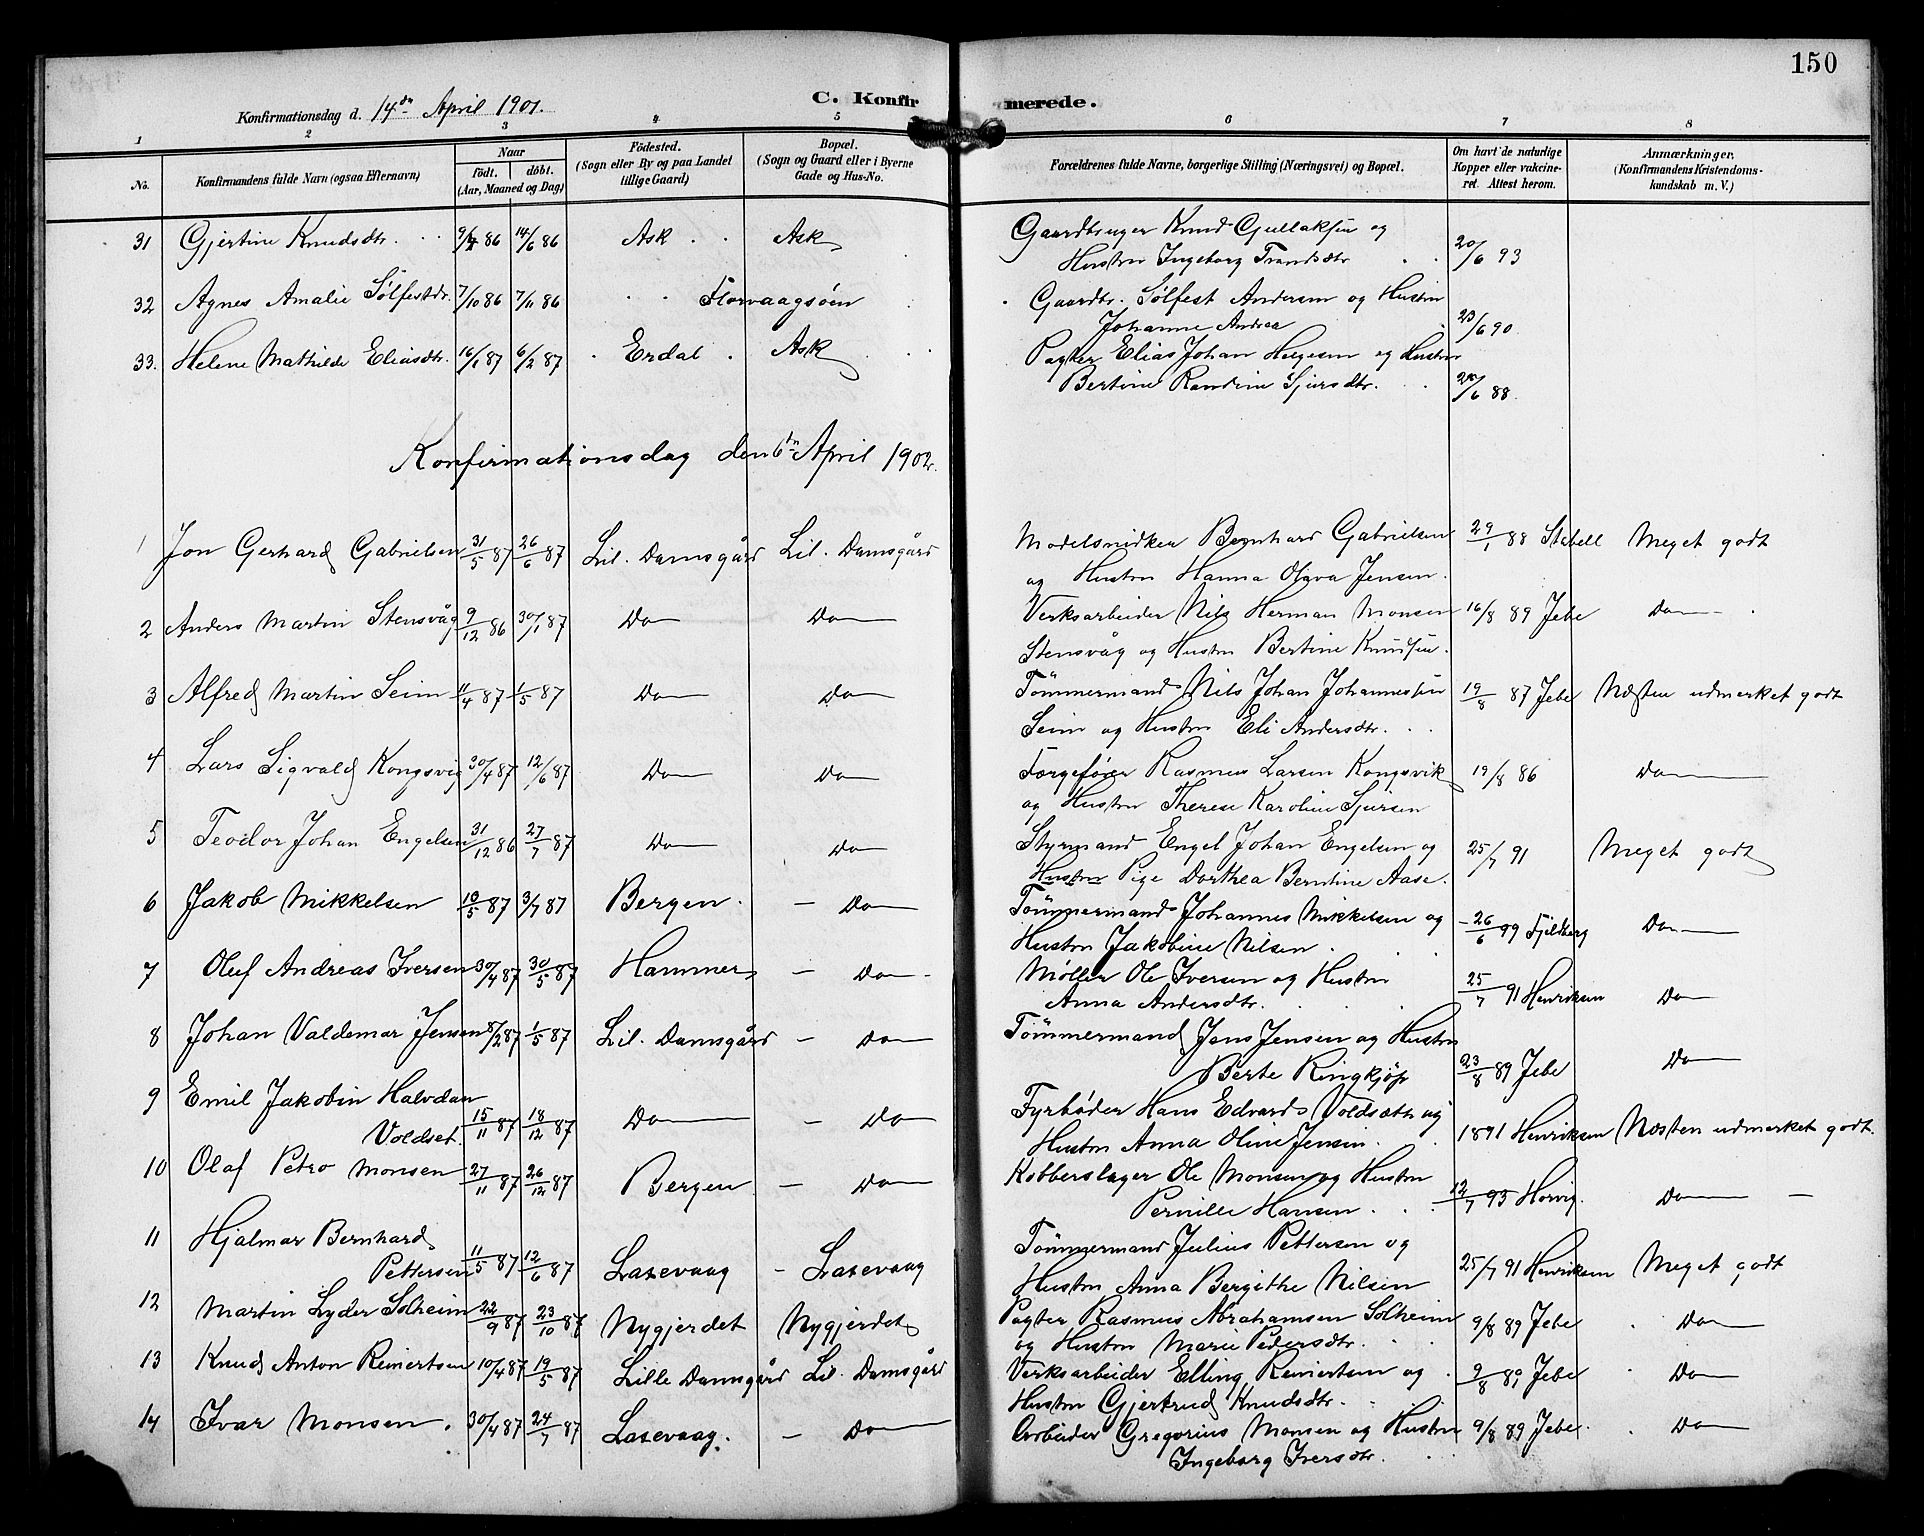 150
Konfirmationsdag d. 14de April 1901.
C. Konfirmerede.
1 2 3 4 5 6 7 8
No.
Konfirmandens fulde Navn (ogsaa Efternavn)
Naar
født. døbt.
(Aar, Maaned og Dag)
Födested.
(Sogn eller By og paa Landet
tillige Gaard)
Bopæl.
(Sogn og Gaard eller i Byerne
Gade og Hus-No.
Forældrenes fulde Navne, borgerlige Stilling (Næringsvei) og Bopæl.
Om havt de naturlige
Kopper eller vakcine-
ret. Attest herom.
Anmærkninger.
(Konfirmandens Kristendoms-
kundskab m. V.)
31 Gjertine Knudsdtr. 86 14/6 86 Ask Ask Gaardbruger Knud Gullaksen og
Hustru Ingeborg Trondsdtr 20/6 93
32 Agnes Amalie Sølfestdr. 7/10 86 7/11 86 Florvaagsøen Gaardbr. Sølfest Andersen og Hustru
Johanne Andrea 23/6 90
33. Helene Mathilde Eliasdtr. 16/1 87 6/2 87 Erdal Ask Pagter Elias Johan Helgesen og Hustru
Bertine Randine Sjursdtr. /6 88.
Konfirmationsdag den 6te April 1902.
1 Jon Gerhard Gabrielsen 31/5 87 26/6 87 Lil. Damsgård Lil. Damsgård Modelsnidker Bernhard Gabrielsen 29/1 88 Stabell Meget godt
og Hustru Hanna Olava Jensen.
2 Anders Martin Stensvåg 9/12 86 30/1 87 Do Do Verksarbeider Nils Herman Monsen 16/8 89 Jebe Do
Stensvåg og Hustru Bertine Knudsen.
3 Alfred Martin Seim 11/4 87 1/5 87 Do Do Tømmermand Nils Johan Johannessen 19/8 87 Jebe Næsten udmerket godt
Seim og Hustru Eli Andersdtr.
4 Lars Sigvald Kongsvig 30/4 87 12/6 87 Do Do Færgefører Rasmus Larsen Kongsvik 19/8 86 Do
og Hustru Therese Karoline Sjursen
5 Teodor Johan Engelsen 31/12 86 27/7 87 Do Do Styrmand Engel Johan Engelsen og 25/7 91 Meget godt
Hustru Pige Dorthea Berntine Aase.
6 Jakob Mikkelsen 10/5 87 3/7 87 Bergen. — Do Tømmermand Johannes Mikkelsen og 26/6 99 Fjeldberg Do
Hustru Jakobine Nilsen.
7 Oluf Andreas Iversen 30/4 87 30/5 87 Hammer — Do Møller Ole Iversen og Hustru 25/7 91 Henriksen Do
Anna Andersdtr.
8 Johan Valdemar Jensen 8/2 87 1/5 87 Lil. Damsgård — Do Tømmermand Jens Jensen og Hustru
Berte Ringkjøp 23/8 89 Jebe Do
9 Emil Jakobin Halvdan
Voldset. 15/11 87 18/12 87 Do — Do Fyrbøder Hans Edvard Voldsæter og
Hustru Anna Oline Jensen. 1891 Henriksen Næsten udmerket godt.
10 Olaf Petro Monsen 27/11 87 26/12 87 Bergen — Do Kobberslager Ole Monsen og Hustru
Pernille Hansen. 12/7 93 Horvig. Do —
11 Hjalmar Bernhard
Pettersen 11/5 87 12/6 87 Laxevaag — Laxevaag Tømmermand Julius Pettersen og
Hustru Anna Bergithe Nilsen 25/7 91 Henriksen Meget godt
12 Martin Lyder Solheim 22/9 87 23/10 87 Nygjerdet Nygjerdet Pagter Rasmus Abrahamsen Solheim 9/8 89 Jebe Do
og Hustru Marie Pedersdtr.
13 Knud Anton Reinertsen 10/4 87 19/5 87 Lille Damsgård Lil. Damsgård Verksarbeider Elling Reinertsen og 9/8 89 Jebe Do
Hustru Gjertrud Knudsdtr.
14 Ivar Monsen. 30/4 87 24/7 87 Laxevaag. — Do Arbeider Gregorius Monsen og Hustru 9/8 89 Jebe Do
Ingeborg Iversdtr.